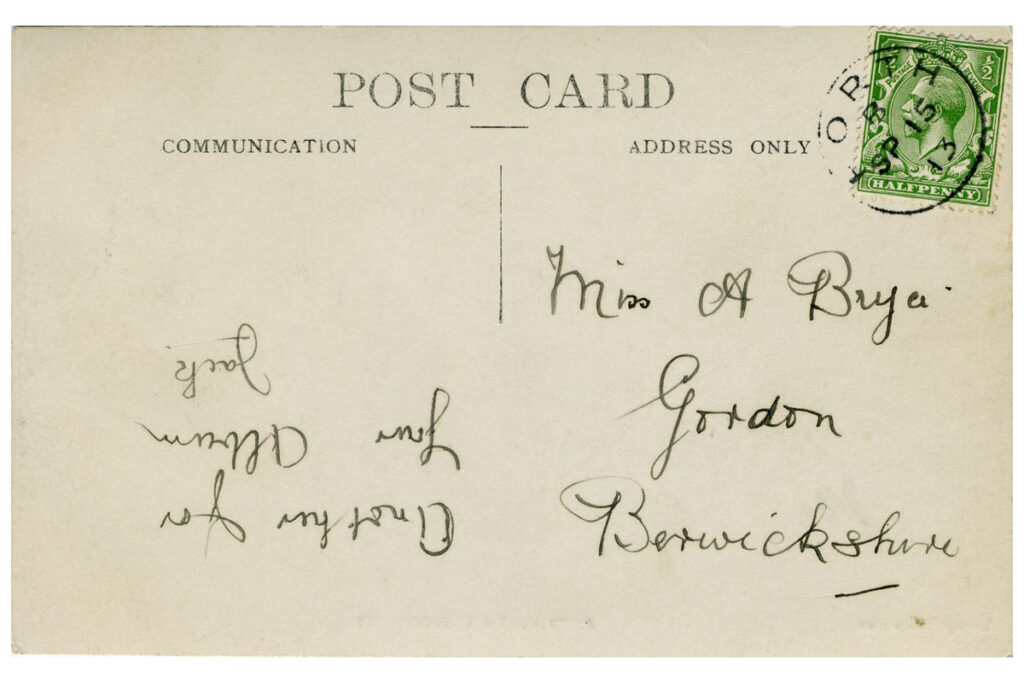 POST CARD
COMMUNICATION
ADDRESS ONLY
POSTAGE REVENUE
½
HALFPENNY
B
SP 15
13
Miss A
Gordon
Berwickshire
Another for
Your Album
Jack